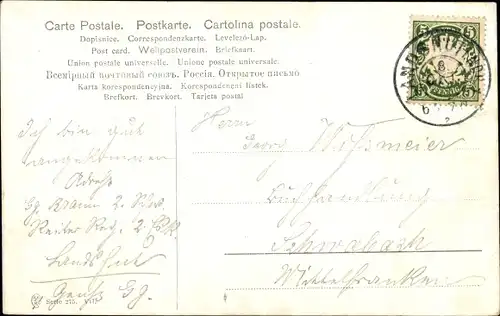 Carte Postale. Postkarte. Cartolina postale.
Dopisnice. Correspondenzkarte. Levelező-Lap.
Post card. Weltpostverein. Briefkaart.
Union postale universelle. Unione postale universale.
Всемірный почтовый союзъ. Россія. Открытое письмо
Karta korespondencyjna. Korespondenční listek.
Brefkort. Brevkort. Tarjeta postal
5 5
PFENNIG
6
Ich bin gut
angekommen
Adresse
Gg. Braun 2. Schw.
Reiter Reg. 2. Esk.
Landshut
Gruß Gg.
Serie 275.
Herrn
Georg
Buchhandlung
Schwabach
Mittelfranken